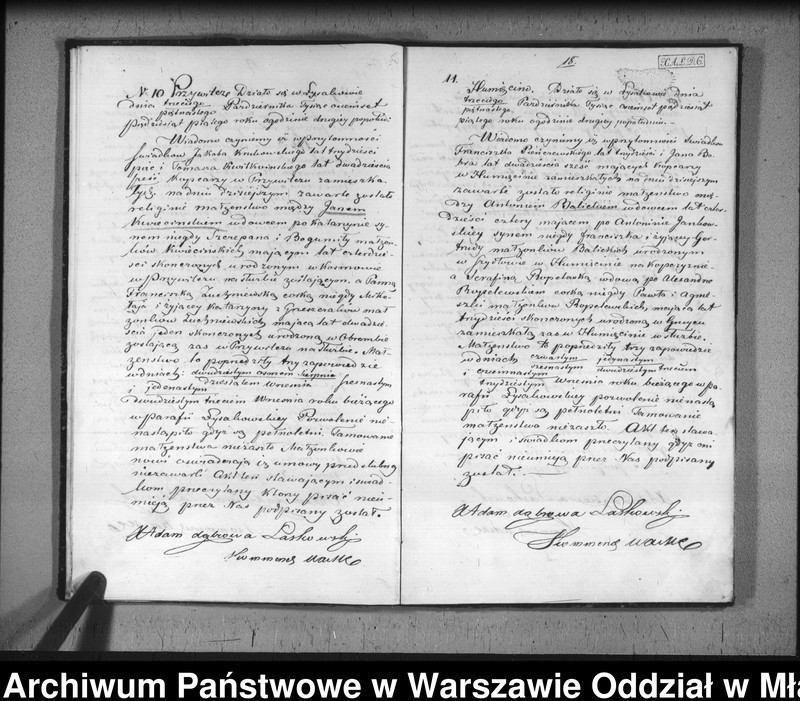 N. 10 Przywilcz Działo się w Łysakowie
dnia trzeciego Października Tysiąc ośmset
piętnastego
pięćdziesiąt piątego roku o godzinie drugiej popołu
Wiadomo czynimy iż w przytomności
świadków Jakóba lat trzydzieści
pięć i Tomasza Kwiatkowskiego lat dwadzieścia
sześć Kopczarzy w Przywilczu zamieszka
łych na dniu dzisiejszym zawarte zostało
religijne małżeństwo między Janem
Kwiecińskiem wdowcem po Katarzynie sy
nem niegdy Szczepana i Bogumiły małżon
ków Kwiecińskich mającym lat czterdzie
ści skończonych urodzonym w
w Przywilczu na służbie zostającym, a Panną
Franciszką córką niegdy Miko
łaja i żyjącej Katarzyny z małż
żonków mającą lat dwadzie
ścia jeden skończonych urodzoną w
zostającą zaś w Przywilczu na służbie. Mał
żeństwo to poprzedziły trzy zapowiedzie
w dniach dwudziestym ósmem Sierpnia
dziesiątem Września szesnastym
i jedenastym
dwudziestym trzecim Września roku bieżącego
w parafii Łysakowskiej Pozwolenie nie
nastąpiło gdyż są pełnoletni. Tamowanie
małżeństwa nie zaszło Małżonkowie
nowi oświadczają iż umowy przedślubnej
niezawarli Akt ten stawającym i świad
kom przeczytany który pisać nieu
mieją przez Nas podpisany został.
X Adam dąbrowa Laskowski
18
X.A.E.D.6.
11.
Humięcino. Działo się w Łysakowie dnia
trzeciego Października Tysiąc ośmset pięćdziesiąt
piętnastego
piątego roku o godzinie drugiej popołudniu.
Wiadomo czynimy iż w przytomności świadków
Franciszka lat trzydzieści i Jana
lat dwadzieścia sześć mających Kopczarzy
w Humięcinie zamieszkałych na dniu dzisiejszym
zawarte zostało religijne małżeństwo mię
dzy Antonim Balickiem wdowcem lat czter
dzieści cztery mającym po Antoninie
synem niegdy Franciszka i żyjącej Ger
trudy małżonków Balickich urodzonym
w w Humięcinie na
a Serafiną wdową po Alexandrze
córką niegdy Pawła i Agnie
szki małżonków mającą lat
trzydzieści skończonych urodzoną w
zamieszkałą zaś w Humięcinie w służbie.
Małżeństwo to poprzedziły trzy zapowiedzie
w dniach czwartym jedynastym
szesnastym dwudziestym trzeciem
i osiemnastym
trzydziestym Września roku bieżącego w pa
rafii Łysakowskiej pozwolenie nienastą
piło gdyż są pełnoletni Tamowanie
małżeństwa nie zaszło. Akt ten stawa
jącym i świadkom przeczytany gdyż oni
pisać nieumieją przez Nas podpisany
został.
X Adam dąbrowa Laskowski
Archiwum Państwowe w Warszawie Oddział w Mła